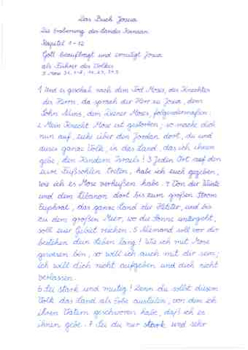 Das Buch Josua
Die Eroberung des Landes Kanaan
Kapitel 1 - 12
Gott beauftragt und ermutigt Josua
als Führer des Volkes
1 Und es geschah nach dem Tod Moses, des Knechtes
des Herrn, da sprach der Herr zu Josua, dem
Sohn Nuns, dem Diener Moses, folgendermaßen:
2 Mein Knecht Mose ist gestorben; so mache dich
nun auf, ziehe über den Jordan dort, du und
dieses ganze Volk, in das Land, das ich ihnen
gebe, den Kindern Israels! 3 Jeden Ort, auf den
eure Fußsohlen treten, habe ich euch gegeben,
wie ich es Mose verheißen habe. 4 Von der Wüste
und dem Libanon dort bis zum großen Strom
Euphrat, das ganze Land der Hetiter, und bis
zu dem großen Meer, wo die Sonne untergeht,
soll euer Gebiet reichen. 5 Niemand soll vor dir
bestehen dein Leben lang! Wie ich mit Mose
gewesen bin, so will ich auch mit dir sein;
ich will dich nicht aufgeben und dich nicht
verlassen.
6 Sei stark und mutig! Denn du sollst diesem
Volk das Land als Erbe austeilen, von dem ich
ihren Vätern geschworen habe, daß ich es
ihnen gebe. 7 Sei du nur stark und sehr